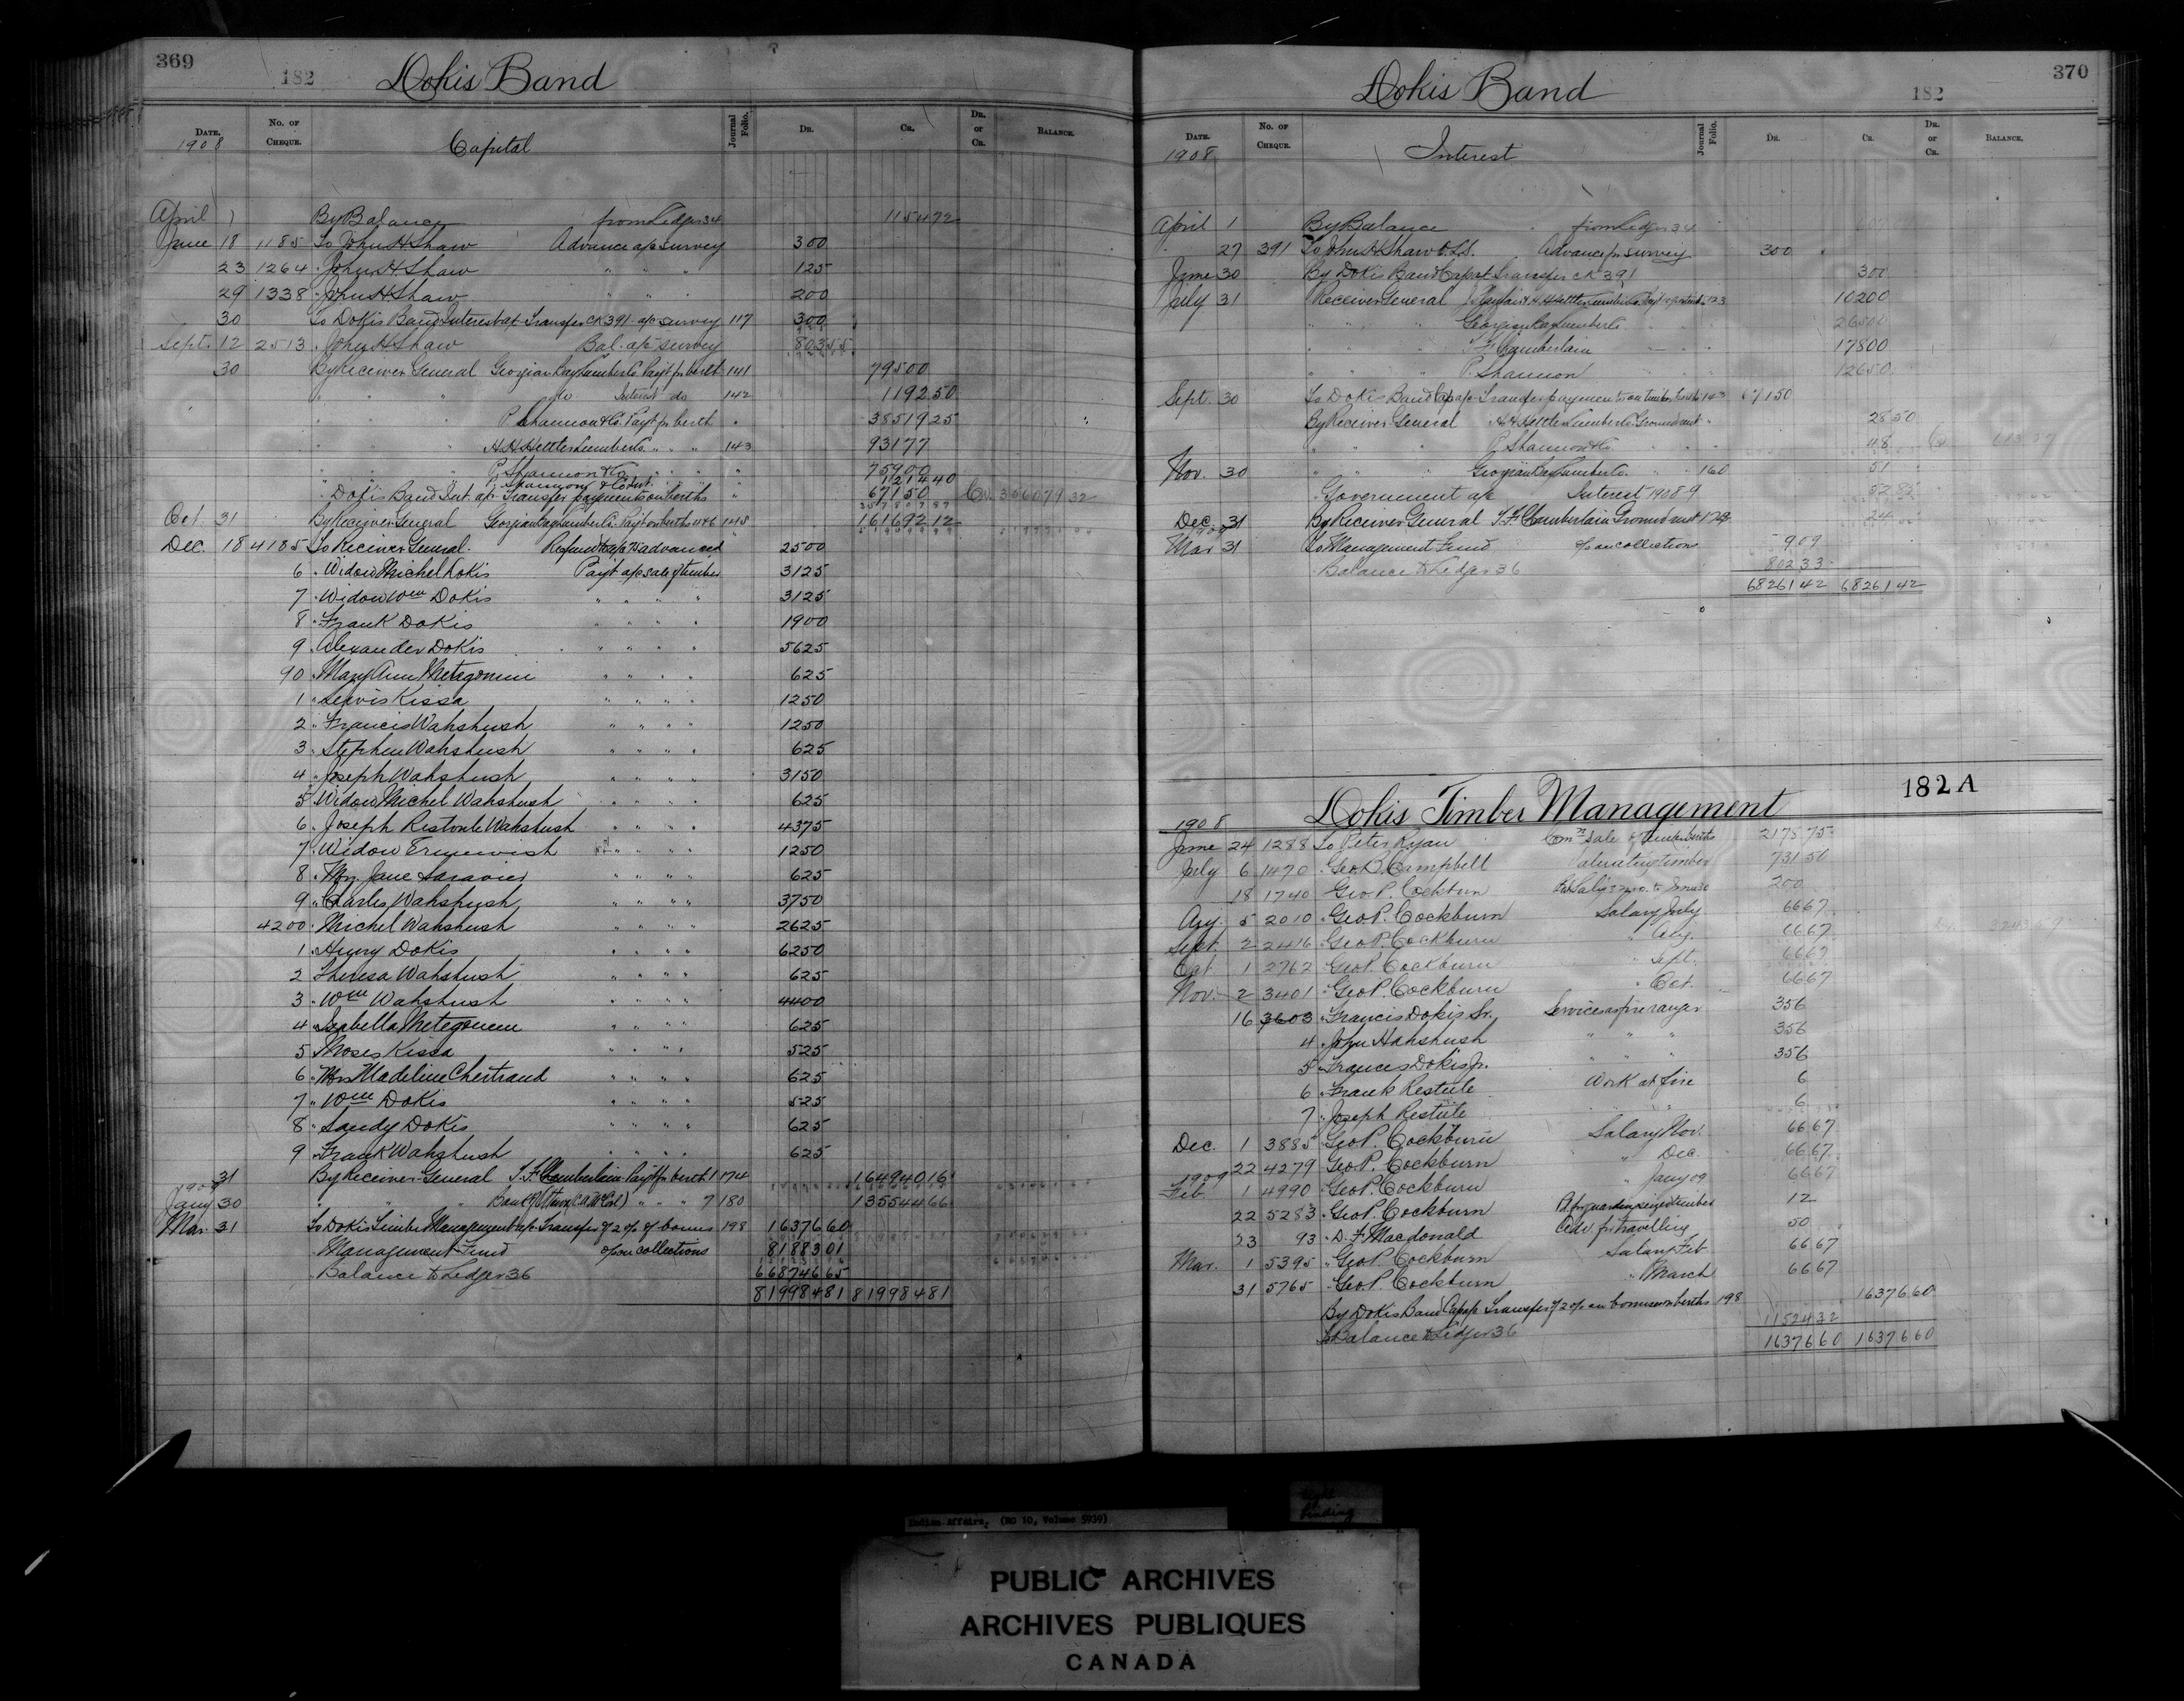 369
182 Dokis Band
Date. No. of Cheque. Capital Journal Folio. Dr. Cr. Dr. or Cr. Balance.
1908
April 1 By Balance from Ledger 34 115472
June 18 1185 To John H Shaw Advance a/c survey 300
23 1264 " John H. Shaw " " " 125
29 1338 " John H Shaw " " " 200
30 To Dokis Band Interest a/c Transfer CK 391 a/c survey 117 300
Sept. 12 2513 " John H Shaw Bal. a/c survey 80355
30 By Receiver General Georgian Bay Lumber Co. Payt for berth 141 79500
" " " do Interest do 142 119250
" " " P. Shannon & Co. Payt for berth " 3851925
" " " H. H. Hettler Lumber Co. " " " 143 93177
" " " P. Shannon & Co. " " " " 75900
" Dokis Band Int. a/c Transfer payments on berths " 67150 Cr.
Oct. 31 By Receiver General Georgian Bay Lumber Co. Payt on berths 16169212
Dec. 18 4185 To Receiver General. Refund to a/c advanced 2500
6 " Widow Michel Dokis Payt a/c sale of timber 3125
7 " Widow Wm Dokis " " " " 3125
8 " Frank Dokis " " " " 1900
9 " Alexander Dokis " " " " 5625
90 " Mary Ann Metagonini " " " " 625
1 " Lewis Kissa " " " " 1250
2 " Francis Wahshush " " " " 1250
3 " Stephen Wahshush " " " " 625
4 " Joseph Wahshush " " " " 3150
5 " Widow Michel Wahshush " " " " 625
6 " Joseph Restoule Wahshush " " " " 4375
7 " Widow " " " " 1250
8 " Mrs. Jane " " " " 625
9 " Charles Wahshush " " " " 3750
4200 " Michel Wahshush " " " " 2625
1 " Henry Dokis " " " " 6250
2 Theresa Wahshush " " " " 625
3 " Wm Wahshush " " " " 4400
4 " Isabella Metegonen " " " " 625
5 " Moses Kissa " " " " 525
6 " Mrs Madeline Chertrand " " " " 625
7 " Wm Dokis " " " " 525
8 " Sandy Dokis " " " " 625
9 " Frank Wahshush " " " " 625
31 By Receiver General T. F. Chamberlain Payt for berth 1 174 16494016
1909
Jany 30 " " " Bank of Ottawa " " " 7 180 13554466
Mar. 31 To Dokis Timber Management a/c Transfer of 2 o/o of bonus 198 1637660
" Management Fund o/o on collections 8188301
" Balance to Ledger 36 66874665
81998481 81998481
370
Dokis Band 182
Date. No. of Cheque. Interest Journal Folio. Dr. Cr. Dr. or Cr. Balance.
1908
April 1 By Balance from Ledger 34
" 27 391 To John H Shaw O.L.S. Advance for survey 300
June 30 By Dokis Band Capat Transfer CK 391 300
July 31 " Receiver General H. H. Hettler Lumber Co. 123 10200
" " " Georgian Bay Lumber Co. 26500
" " " T. F. Chamberlain 17800
" " " P. Shannon 12650
Sept. 30 To Dokis Band Cap a/c Transfer payments on timber berths 143 67150
By Receiver General H. H. Hettler Lumber Co. Ground rent " 2850
" " " P. Shannon & Co. " " " 48
Nov. 30 " " " Georgian Bay Lumber Co. " " 160 51
" Government a/c Interest 1908-9 5282
Dec. 31 By Receiver General T. F. Chamberlain Ground rent 24
1909
Mar 31 To Management Fund o/o on collections 909
" Balance to Ledger 36 80233
6826142 6826142
182 A
Dokis Timber Management
1908
June 24 1288 To Peter Ryan Comn Sale of timber berths 217575
July 6 1470 " Geo. B. Campbell Valuating timber 73150
18 1740 " Geo. P. Cockburn to June 30 200
Aug. 5 2010 " Geo. P. Cockburn Salary July 6667
Sept. 2 2416 " Geo. P. Cockburn " Aug. 6667
Oct. 1 2762 " Geo. P. Cockburn " Sept. 6667
Nov. 2 3401 " Geo. P. Cockburn " Oct. 6667
16 3603 " Francis Dokis Sr. Services as fire ranger 356
4 " John Hahshush " " " 356
5 " Frances Dokis Jr. " " " 356
6 " Frank Restule Work at fire 6
7 " Joseph Restule " " " 6
Dec. 1 3885 " Geo. P. Cockburn Salary Nov. 6667
22 4279 " Geo. P. Cockburn " Dec. 6667
1909
Feb. 1 4990 " Geo. P. Cockburn " Jany 09 6667
22 5283 " Geo. P. Cockburn Pd. for guarding seized timber 12
23 93 " D. F. Macdonald Adv. for travelling 50
Mar. 1 5395 " Geo. P. Cockburn Salary Feb. 6667
31 5765 " Geo. P. Cockburn " March 6667
By Dokis Band Cap a/c Transfer of 2 o/o on bonuses on berths 198 1637660
To Balance to Ledger 36 1152432
1637660 1637660
Indian Affairs, (RG 10, Volume 5939)
tight
binding
PUBLIC ARCHIVES
ARCHIVES PUBLIQUES
CANADA